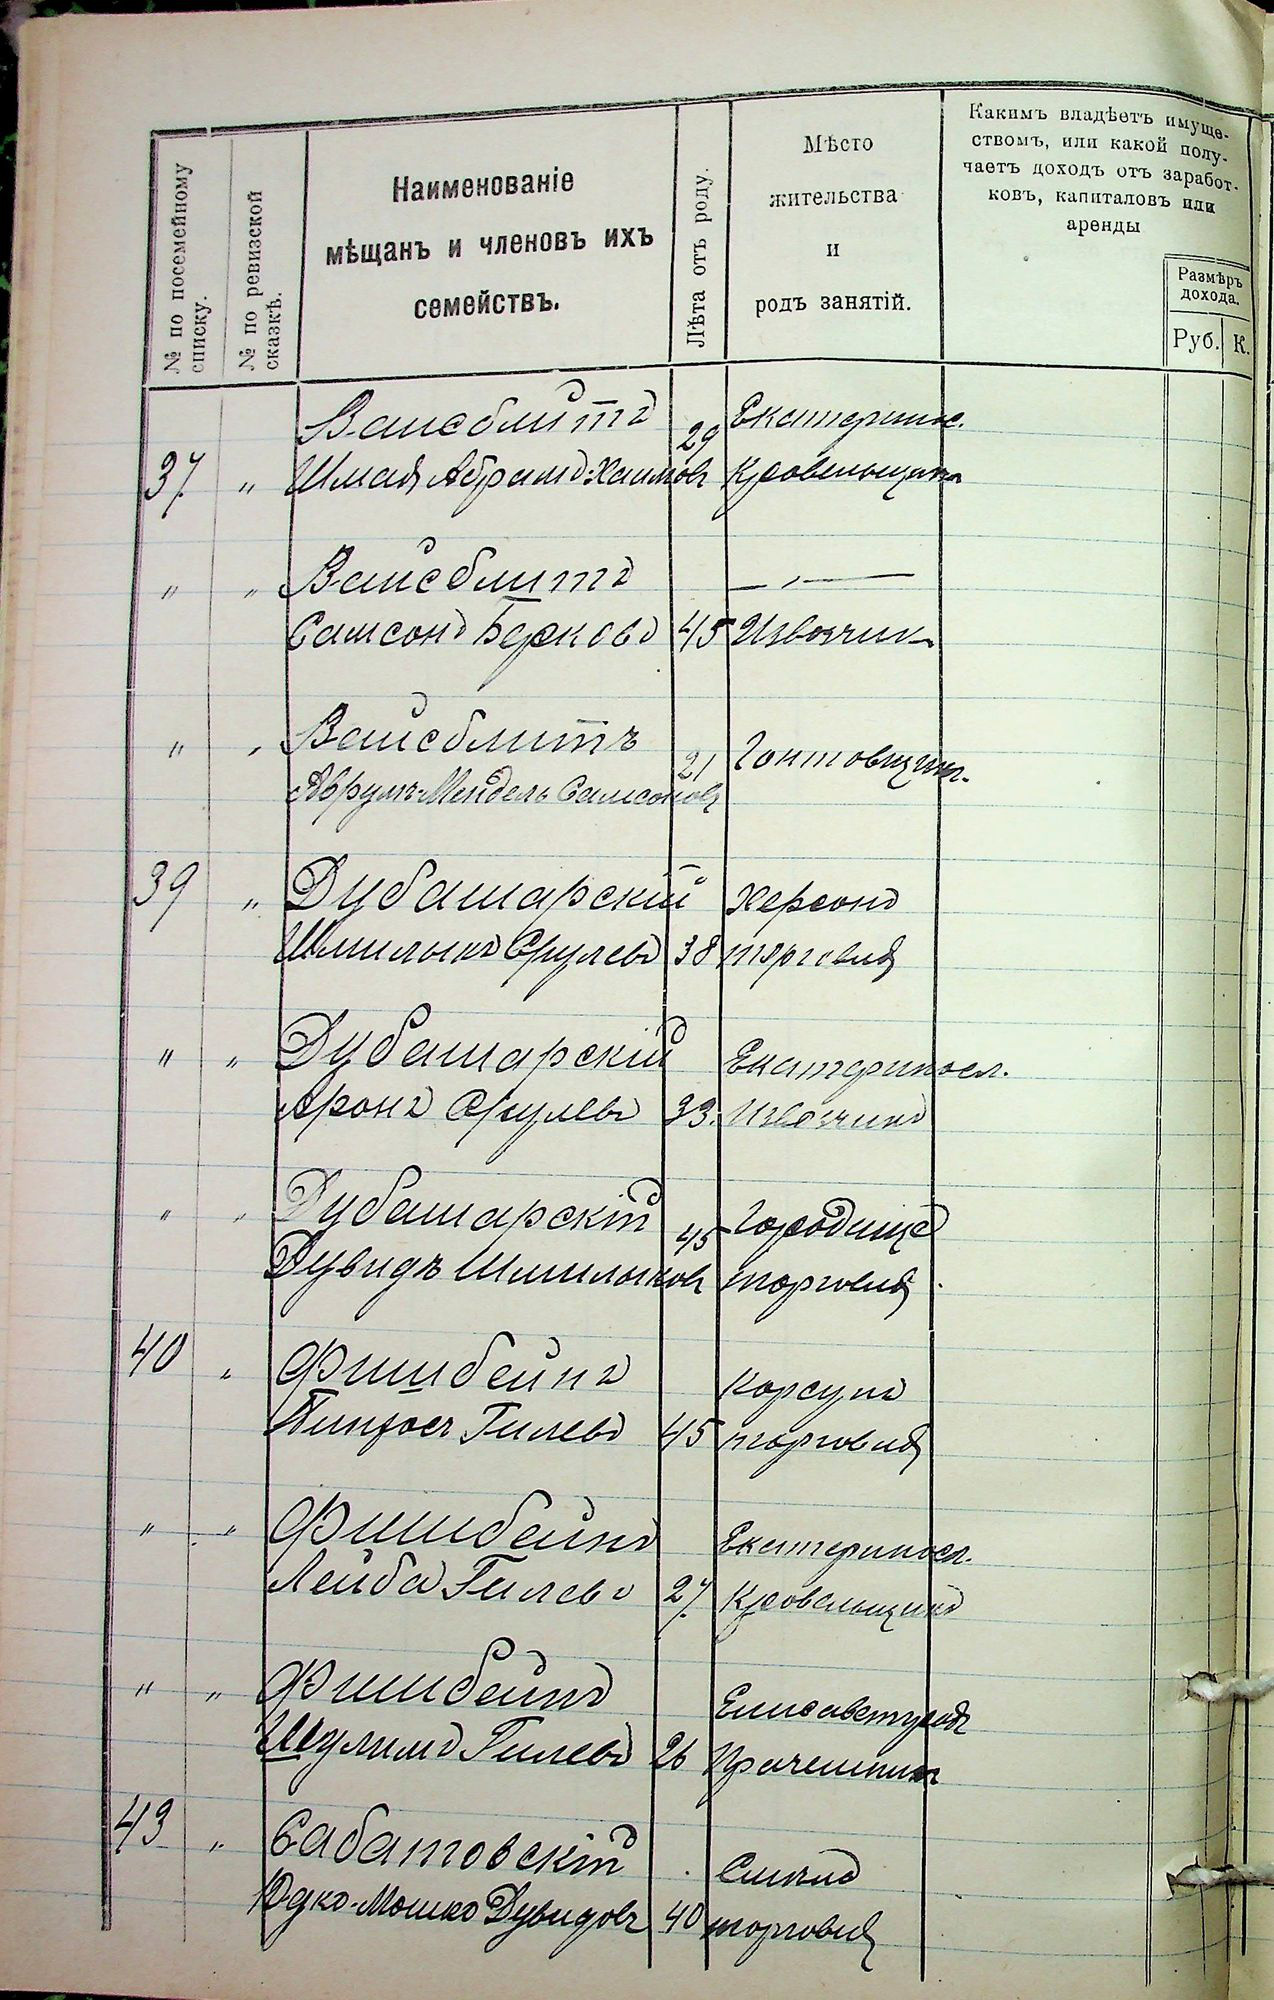 № по посемейному
списку.
№ по ревизской
сказкѣ.
Наименованіе
мѣщанъ и членовъ ихъ
семействъ.
Лѣта отъ роду.
Мѣсто
жительства
и
родъ занятій.
Какимъ владѣетъ имуще-
ствомъ, или какой полу-
чаетъ доходъ отъ заработ-
ковъ, капиталовъ или
аренды
Размѣръ
дохода.
Руб. К.
Вайсблитъ 29 Екатеринос.
37. " Шмая Абрамъ-Хаимовъ Кровельщикъ
" " Вайсблитъ — " —
Самсонъ Берковъ 45 Извозчикъ
" " Вайсблитъ 21 Гонтовщик.
Аврумъ-Мендель Самсоновъ
39 " Дубашарскій Херсонъ
Шмилыкъ Срулевъ 38 торговля
" " Дубашарскій Екатериносл.
Аронъ Срулевъ 33. Извозчикъ
" " Дубашарскій 45 Городище
Дувидъ Шмилыковъ торговля
40 " Фишбейнъ Корсунь
Пинхосъ Гилевъ 45 торговля
" " Фишбейнъ Екатериносл.
Лейба Гилевъ 27. Кровельщикъ
" " Фишбейнъ Елисаветградъ
Шулимъ Гилевъ 26
43 " Сабатовскій Смѣла
Юдко-Мошко Дувидовъ 40 торговля